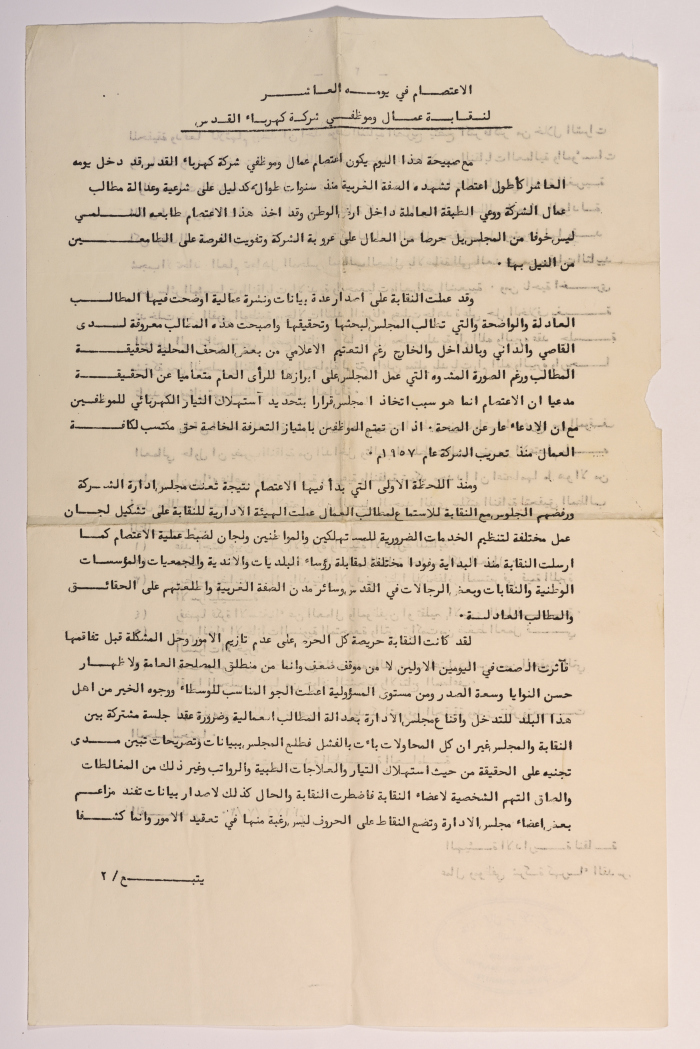 الاعتصام في يومه العاشر
لنقابة عمال وموظفي شركة كهرباء القدس
مع صبيحة هذا اليوم يكون اعتصام عمال وموظفي شركة كهرباء القدس قد دخل يومه
العاشر كأطول اعتصام تشهده الضفة الغربية منذ سنوات طوال كدليل على شرعية وعدالة مطالب
عمال الشركة ووعي الطبقة العاملة داخل ارض الوطن وقد اخذ هذا الاعتصام طابعه السلمي
ليس خوفا من المجلس بل حرصا من العمال على عروبة الشركة وتفويت الفرصة على الطامعين
من النيل بها .
وقد عملت النقابة على اصدار عدة بيانات ونشرة عمالية اوضحت فيها المطالب
العادلة والواضحة والتي تطالب المجلس لبحثها وتحقيقها واصبحت هذه المطالب معروفة لدى
القاصي والداني وبالداخل والخارج رغم التعتيم الاعلامي من بعض الصحف المحلية لحقيقة
المطالب ورغم الصورة المشوه التي عمل المجلس على ابرازها للرأى العام متعاميا عن الحقيقة
مدعيا ان الاعتصام انما هو سبب اتخاذ ا مجلس قرارا بتحديد آستهلاك التيار الكهربائي للموظفين
مع ان الادعاء عار عن الصحة . اذ ان تمتع الموظفين بامتياز التعرفة الخاصة حق مكتسب لكافة
العمال منذ تعريب الشركة عام ١٩٥٧م .
ومنذ اللحظة الاولى التي بدأ فيها الاعتصام نتيجة تعنت مجلس ادارة الشركة
ورفضهم الجلوس مع النقابة للاستماع لمطالب العمال عملت الهيئة الادارية للنقابة على تشكيل لجان
عمل مختلفة لتنظيم الخدمات الضرورية للمستهلكين والمواطنين ولجان لضبط عملية الاعتصام كما
ارسلت النقابة منذ البداية وفودا مختلفة لمقابلة رؤساء البلديات والاندية والجمعيات والمؤسسات
الوطنية والنقابات وبعض الرجالات في القدس وسائر مدن الضفة الغربية واطلعتهم على الحقائق
والمطالب العادلة .
لقد كانت النقابة حريصة كل الحرص على عدم تازيم الامور وحل المشكلة قبل تفاقمها
فآثرت الصمت في اليومين الاولين لا من موقف ضعف وانما من منطلق المصلحة العامة ولاظهار
حسن النوايا وسعة الصدر ومن مستوى المسؤولية اعطت الجو المناسب للوسطاء ووجوه الخير من اهل
هذا البلد للتدخل واقناع مجلس الادارة بعدالة المطالب العمالية وضرورة عقد جلسة مشتركة بين
النقابة والمجلس غير ان كل المحاولات باءت بالفشل فطلع المجلس ببيانات وتصريحات تبين مدى
تجنيه على الحقيقة من حيث استهلاك التيار والعلاجات الطبية والرواتب وغير ذلك من المغالطات
والصاق التهم الشخصية لاعضاء النقابة فاضطرت النقابة والحال كذلك لاصدار بيانات تفند مزاعم
بعض اعضاء مجلس الادارة وتضع النقاط على الحروف ليس رغبة منها في تعقيد الامور وانما كشفا
يتبع / ٢